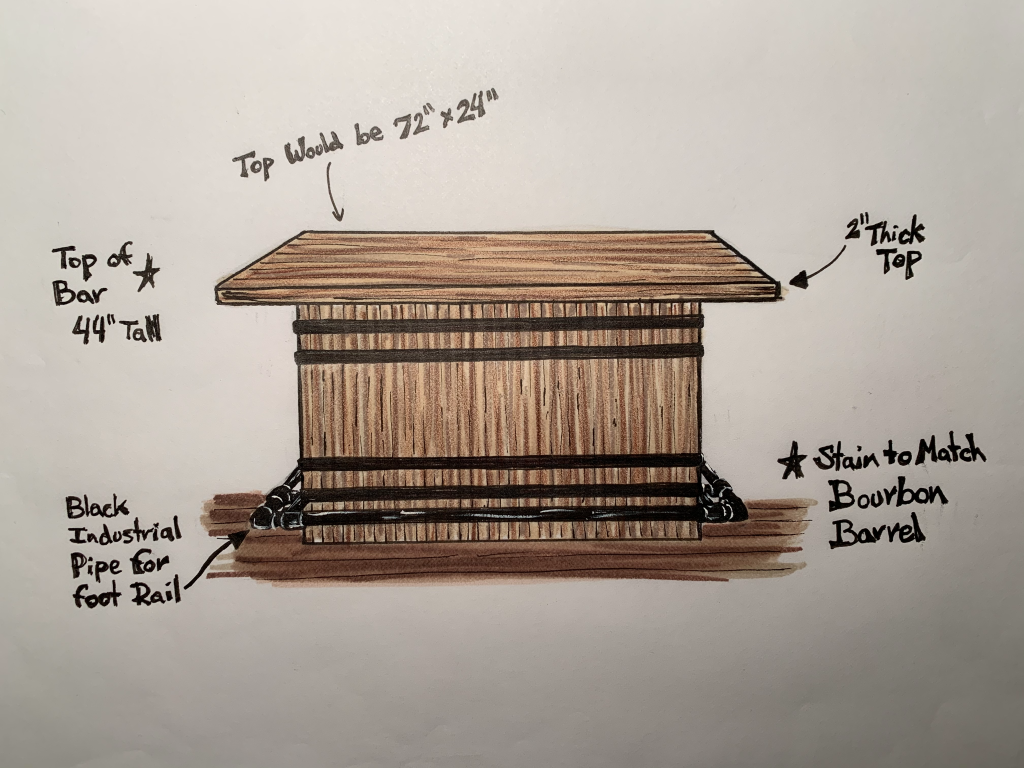 Top Would be 72" x 24"
Top of
Bar
44" Tall
2" Thick
Top
Stain to Match
Bourbon
Barrel
Black
Industrial
Pipe for
foot Rail